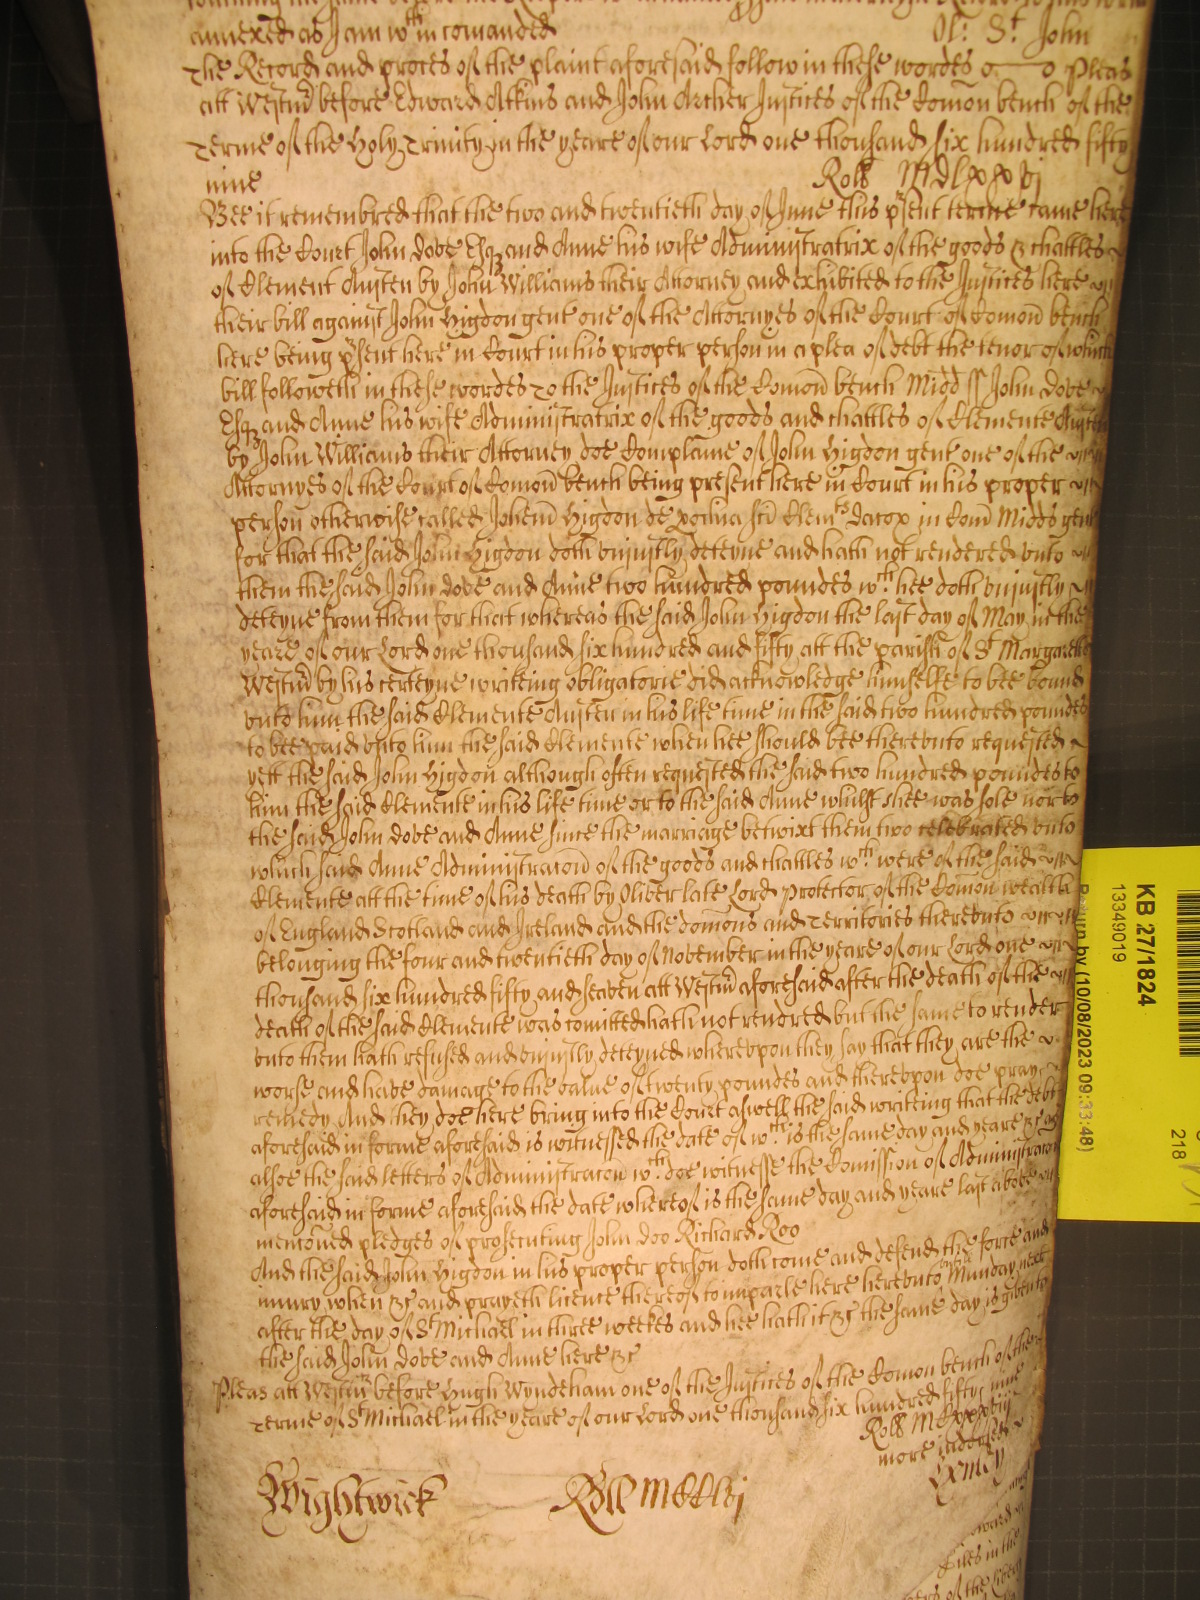 annexed as I am wth in comanded Ol: St John
The Record and proces of the plaint aforesaid follow in these wordes o—o Pleas
att Westm before Edward Atkins and John Archer Justices of the Comon bench of the
Terme of the Holy Trinity in the yeare of our Lord one thousand six hundred fifty
nine Roll MDlxxvj
Bee it remembred that the two and twentieth day of June this psent terme came here
into the Court John Dove Esqz and Anne his wife Administratrix of the goods & chattles
of Clement Austen by John Williams their Attorney and exhibited to the Justices here
their bill against John Higdon gent one of the Attornyes of the Court of Comon bench
here being psent here in Court in his proper person in a plea of debt the tenor of which
bill followeth in these wordes To the Justices of the Comon bench Midd ss John Dove
Esqz and Anne his wife Administratrix of the goods and chattles of Clemente Austen
by John Williams their Attorney doe Complaine of John Higdon gent one of the
Attornyes of the Court of Comon bench being present here in Court in his proper
person otherwise called Johem Higdon de pochia sci Clemtis Dacor in Com Midds gent
for that the said John Higdon doth uniustly deteyne and hath not rendered unto
them the said John Dove and Anne two hundred poundes wch hee doth uniustly
deteyne from them for that whereas the said John Higdon the last day of May in the
yeare of our Lord one thousand six hundred and fifty att the parish of St Margaretts
Westm by his certeyne writeing obligatorie did acknowledge himselfe to bee bound
unto him the said Clemente Austen in his life time in the said two hundred poundes
to bee paid unto him the said Clemente when hee should bee thereunto requested
yett the said John Higdon although often requested the said two hundred poundes to
him the said Clemente in his life time or to the said Anne whilst shee was sole nor to
the said John Dove and Anne since the marriage betwixt them two celebrated unto
which said Anne Administracon of the goods and chattles wch were of the said
Clemente att the time of his death by Oliver late Lord Protector of the Comon wealth
of England Scotland and Ireland and the domons and Territories thereunto
belonging the four and twentieth day of November in the yeare of our Lord one
thousand six hundred fifty and seaven att Westm aforesaid after the death of the
death of the said Clemente was comitted hath not rendred but the same to render
unto them hath refused and uniustly deteyned whereupon they say that they are the
worse and have damage to the value of twenty poundes and thereupon doe pray
remedy And they doe here bring into the Court aswell the said writeing that the debt
aforesaid in forme aforesaid is witnessed the date of wch is the same day and yeare &c as
alsoe the said letters of Administracon wch doe witnesse the Comission of Administracon
aforesaid in forme aforesaid the date whereof is the same day and yeare last above
menconed pledges of prosecuting John Doo Richard Roo
And the said John Higdon in his proper person doth come and defend the force and
iniury when &c and prayeth licence thereof to imparle here hereunto untill Munday next
after the day of St Michael in three weekes and hee hath it &c the same day is given to
the said John Dove and Anne here &c
Pleas att Westm before Hugh Wyndeham one of the Justices of the Comon bench of the
Terme of St Michael in the yeare of our Lord one thousand six hundred fifty nine
Roll
more indorsed
Wightwick Roll
KB 27/1824
13349019
Return by (10/08/2023 09:33:48)
218